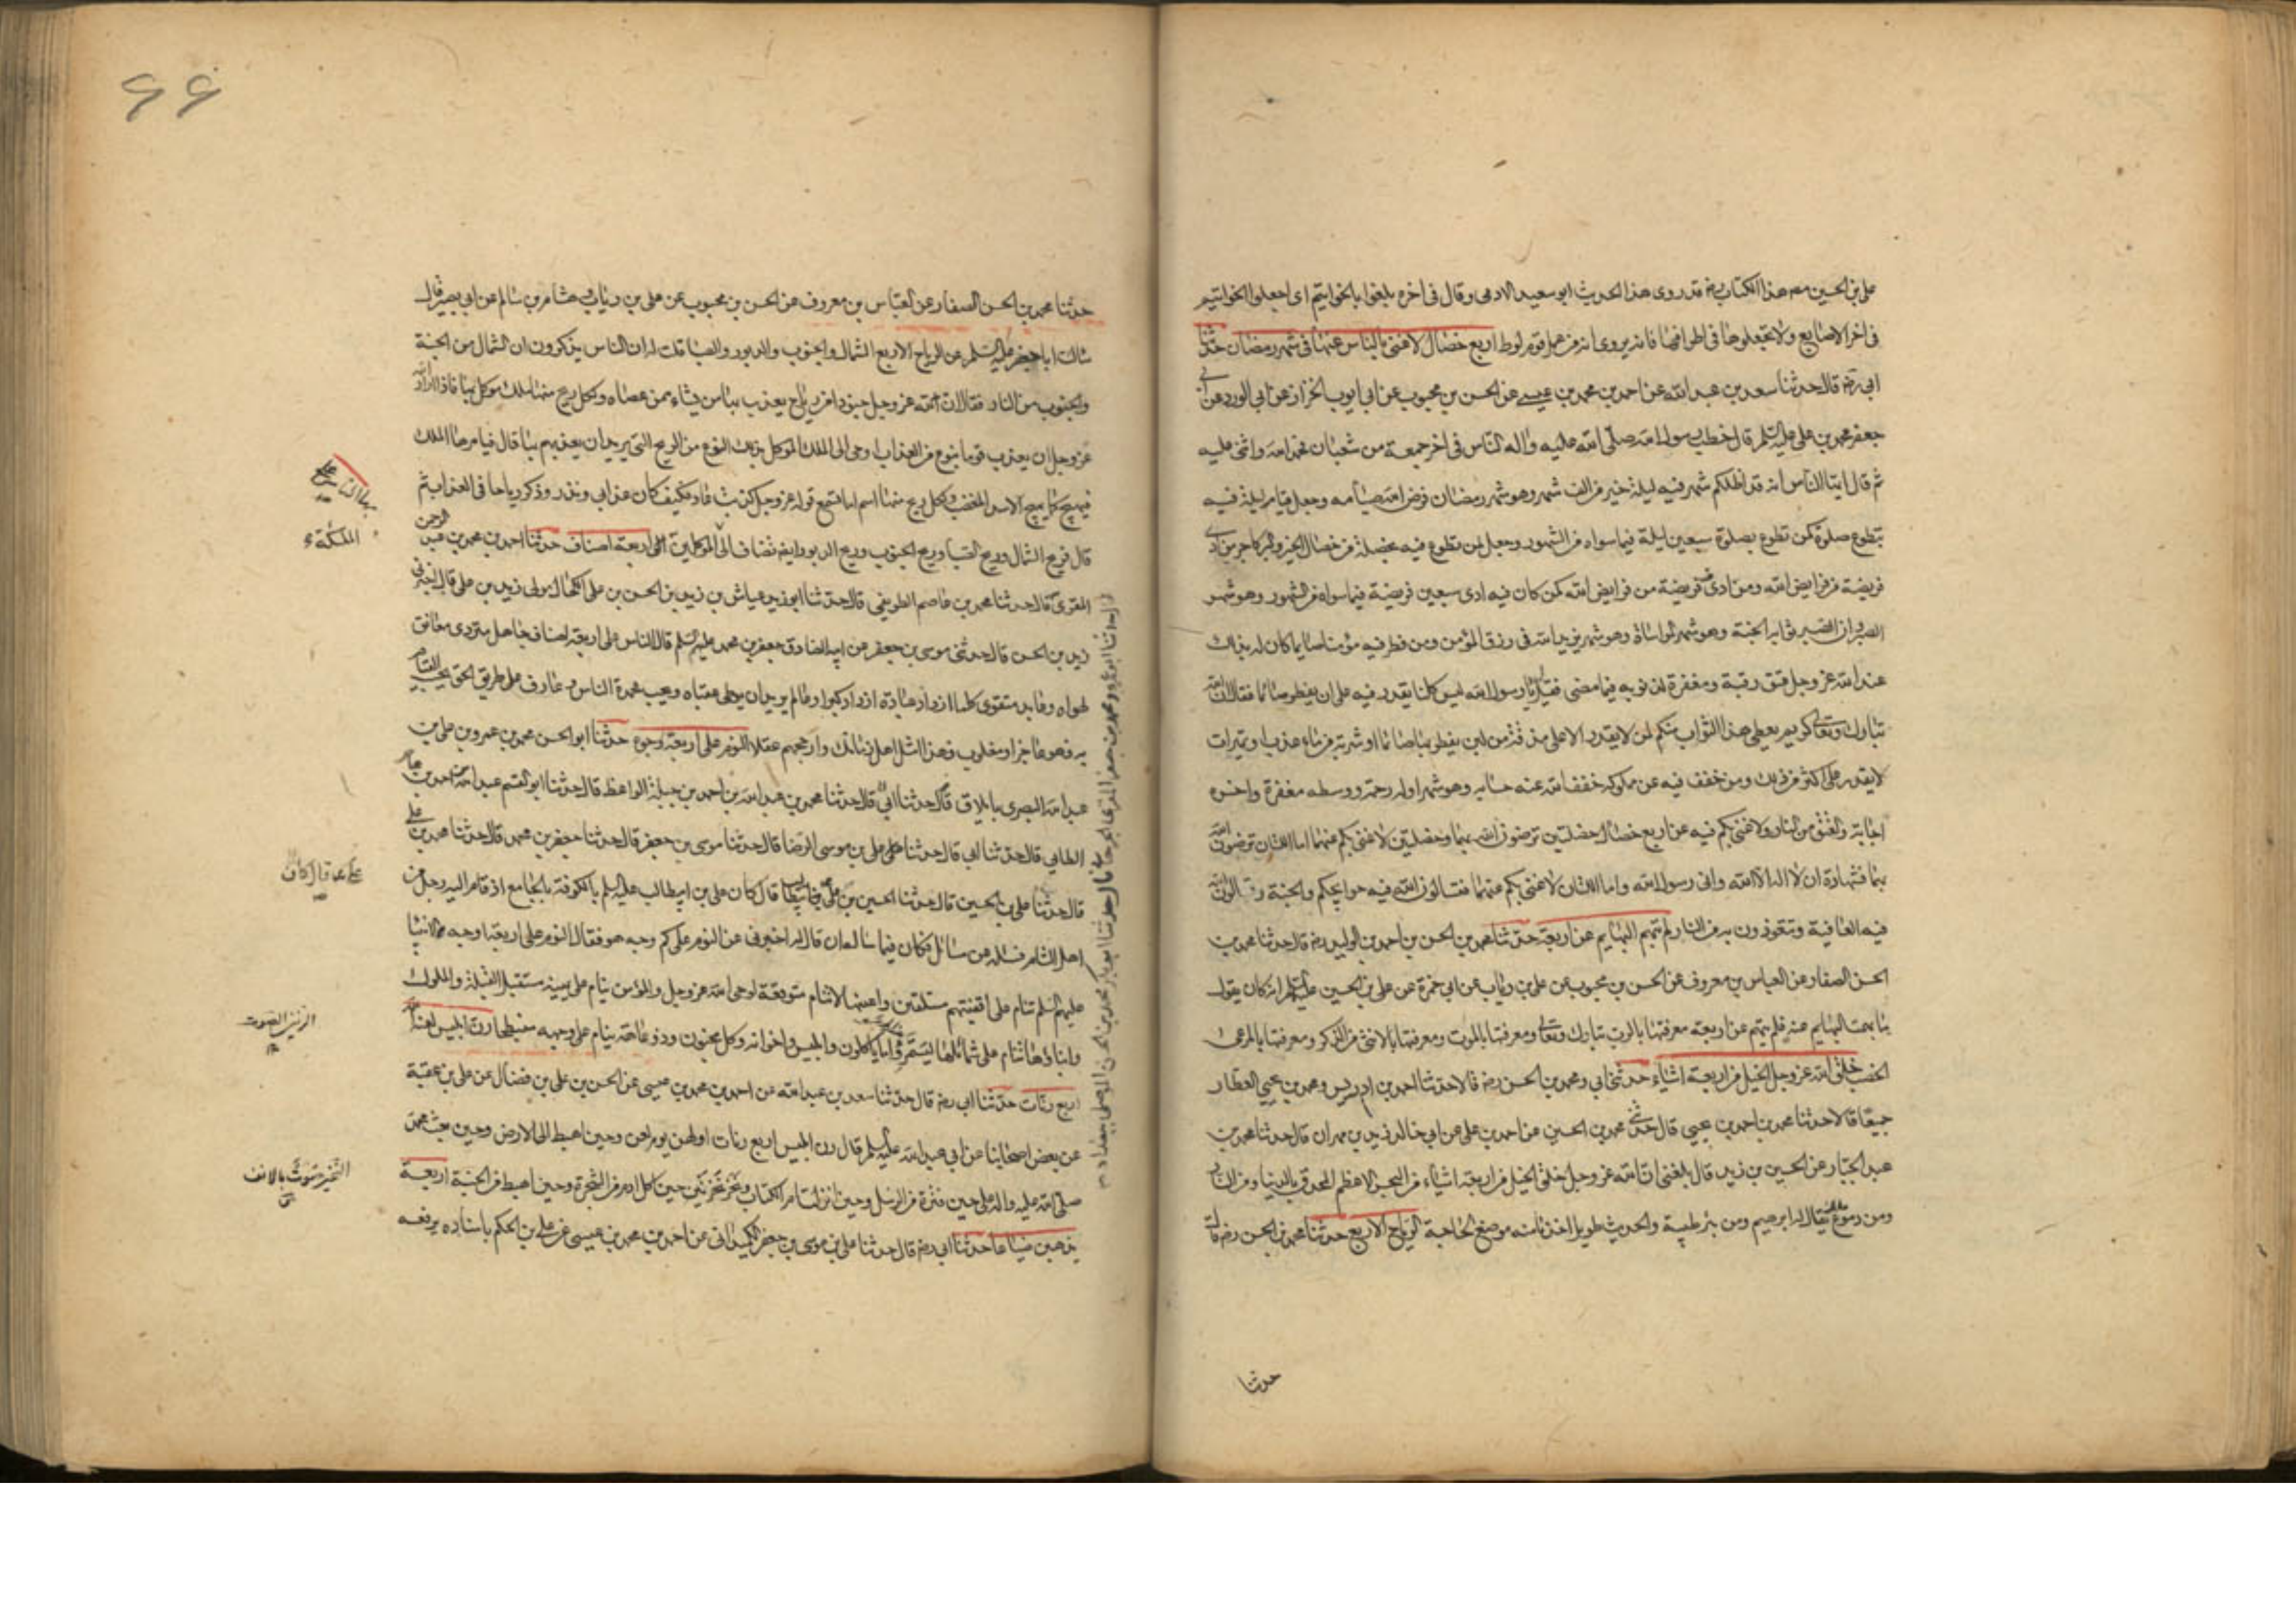 على بن الحسين مصـ هذا الكتاب رضـ قد روى هذا الحديث ابو سعيد الادمى وقال فى اخره بلغوا بالخواتيم اى اجعلوا الخواتيم
فى اخر الاصابع ولا تجعلوها فى اطرافها فانه يروى انه من عمل قوم لوط اربع خصال لا غنى بالناس عنها فى شهر رمضان حدثنا
ابى رضـ قال حدثنا سعد بن عبد الله عن احمد بن محمد بن عيسى عن الحسن بن محبوب عن ابى ايوب الخزاز عن ابى الورد عن ابى
جعفر محمد بن على عليه السلم قال خطب رسول الله صلى الله عليه واله الناس فى اخر جمعة من شعبان فحمد الله واثنى عليه
ثم قال ايها الناس انه قد اظلكم شهر فيه ليلة خير من الف شهر وهو شهر رمضان فرض الله صيامه وجعل قيام ليلة فيه
بتطوع صلوة كمن تطوع بصلوة سبعين ليلة فيما سواه من الشهور وجعل لمن تطوع فيه بخصلة من خصال الخير والبر كاجر من ادى
فريضة من فرايض الله ومن ادى فيه فريضة من فرايض الله كمن كان فيه ادى سبعين فريضة فيما سواه من الشهور وهو شهر
الصبر وان الصبر ثوابه الجنة وهو شهر المواساة وهو شهر يزيد الله فى رزق المؤمن ومن فطر فيه مؤمنا صايما كان له بذلك
عند الله عز وجل عتق رقبة ومغفرة لذنوبه فيما مضى فقيل يا رسول الله ليس كلنا يقدر فيه على ان يفطر صائما فقال ان الله
تبارك وتعالى كريم يعطى هذا الثواب منكم لمن لا يقدر الا على مذقة من لبن يفطر بها صائما او شربة من ماء عذب او تميرات
لا يقدر على اكثر من ذلك ومن خفف فيه عن مملوكه خفف الله عنه حسابه وهو شهر اوله رحمة ووسطه مغفرة واخره
اجابة والعتق من النار ولا غنى بكم فيه عن اربع خصال خصلتين ترضون الله بهما وخصلتين لا غنى بكم عنهما اما اللتان ترضون الله
بهما فشهادة ان لا اله الا الله وانى رسول الله واما اللتان لا غنى بكم عنهما فتسالون الله فيه حوايجكم والجنة وتسالون الله
فيه العافية وتتعوذون به من النار لم تبهم البهايم عن اربعة حدثنا محمد بن الحسن بن احمد بن الوليد رضـ قال حدثنا محمد بن
الحسن الصفار عن العباس بن معروف عن الحسن بن محبوب عن على بن رئاب عن ابى حمزة عن على بن الحسين عليه السلم انه كان يقول
ما بهمت البهايم عنه فلم تبهم عن اربعة معرفتها بالرب تبارك وتعالى ومعرفتها بالموت ومعرفتها بالانثى من الذكر ومعرفتها بالمرعى
الخصب خلق الله عز وجل الخيل من اربعة اشياء حدثنى ابى ومحمد بن الحسن رضـ قالا حدثنا احمد بن ادريس ومحمد بن يحيى العطار
جميعا قالا حدثنا محمد بن احمد بن يحيى قال حدثنى محمد بن الحسين عن احمد بن على عن ابى خالد زيد بن مهران قال حدثنا محمد بن
عبد الجبار عن الحسين بن زيد قال بلغنى ان الله عز وجل خلق الخيل من اربعة اشياء من البحر الاعظم المحدق بالدنيا ومن النار
ومن دموع ملك يقال له ابرهيم ومن بئر طيبة والحديث طويل اخذنا منه موضع الحاجة الرياح الاربع حدثنا محمد بن الحسن رضـ قال
حدثنا
حدثنا محمد بن الحسن الصفار عن العباس بن معروف عن الحسن بن محبوب عن على بن رئاب وهشام بن سالم عن ابى بصير قال
سالت ابا جعفر عليه السلم عن الرياح الاربع الشمال والجنوب والدبور والصبا قلت له ان الناس يذكرون ان الشمال من الجنة
والجنوب من النار فقال ان لله عز وجل جنودا من رياح يعذب بها من يشاء ممن عصاه ولكل ريح منها ملك موكل بها فاذا اراد الله
عز وجل ان يعذب قوما بنوع من العذاب اوحى الى الملك الموكل بذلك النوع من الريح التى يريد ان يعذبهم بها قال فيامرها الملك
فيهيج كما يهيج الاسد المغضب ولكل ريح منها اسم اما تسمع قوله عز وجل كذبت عاد فكيف كان عذابى ونذر وذكر رياحا فى العذاب ثم
قال فريح الشمال وريح الصبا وريح الجنوب وريح الدبور ايضا تضاف الى الموكلين الناس اربعة اصناف حدثنا احمد بن محمد بن عبد الرحمن
المقرئ قال حدثنا محمد بن عاصم الطريفى قال حدثنا ابو زيد عياش بن زيد بن الحسن بن على الكحال مولى زيد بن على قال اخبرنى
زيد بن الحسن قال حدثنى موسى بن جعفر عن ابيه الصادق جعفر بن محمد عليهم السلم قال الناس على اربعة اصناف جاهل متردى معانق
لهواه وعابد متقوى كلما ازداد عبادة ازداد كبرا وعالم يريد ان يوطى عقباه ويحب محمدة الناس وعارف على طريق الحق يحب القيام
به فهو عاجز او مغلوب فهذا امثل اهل زمانك وارجحهم عقلا النوم على اربعة وجوه حدثنا ابو الحسن محمد بن عمرو بن على بن
عبد الله البصرى بايلاق قال حدثنا محمد بن عبد الله بن احمد بن جبلة الواعظ قال حدثنا ابو القسم عبد الله بن احمد بن عامر
الطايى قال حدثنا ابى قال حدثنا على بن موسى الرضا قال حدثنا موسى بن جعفر قال حدثنا جعفر بن محمد قال حدثنا محمد بن على
قال حدثنا على بن الحسين قال حدثنا الحسين بن على قال كان على بن ابيطالب عليه السلم بالكوفة بالجامع اذ قام اليه رجل من
اهل الشام فسئله عن مسائل فكان فيما ساله ان قال له اخبرنى عن النوم على كم وجه هو فقال النوم على اربعة اوجه الانبيا
عليهم السلم تنام على اقفيتهم مستلقين واعينها لا تنام متوقعة لوحى الله عز وجل والمؤمن ينام على يمينه مستقبل القبلة والملوك
وابناؤها تنام على شمائلها ليستمرؤا ما ياكلون وابليس واخوانه وكل مجنون وذو عاهة ينام على وجهه منبطحا رن ابليس لعنه الله
اربع رنات حدثنا ابى رضـ قال حدثنا سعد بن عبد الله عن احمد بن محمد بن عيسى عن الحسن بن على بن فضال عن على بن عقبة
عن بعض اصحابنا عن ابى عبد الله عليه السلم قال رن ابليس اربع رنات اولهن يوم لعن وحين اهبط الى الارض وحين بعث محمد
صلى الله عليه واله على حين فترة من الرسل وحين انزلت ام الكتاب ونخر نخرتين حين اكل ادم من الشجرة وحين اهبط من الجنة اربعة
يذهبن ضياعا حدثنا ابى رضـ قال حدثنا على بن موسى بن جعفر الكميدانى عن احمد بن محمد بن عيسى عن على بن الحكم باسناده يرفعه
الملئكة
الرنين الصوت
النخير صوت بالانف